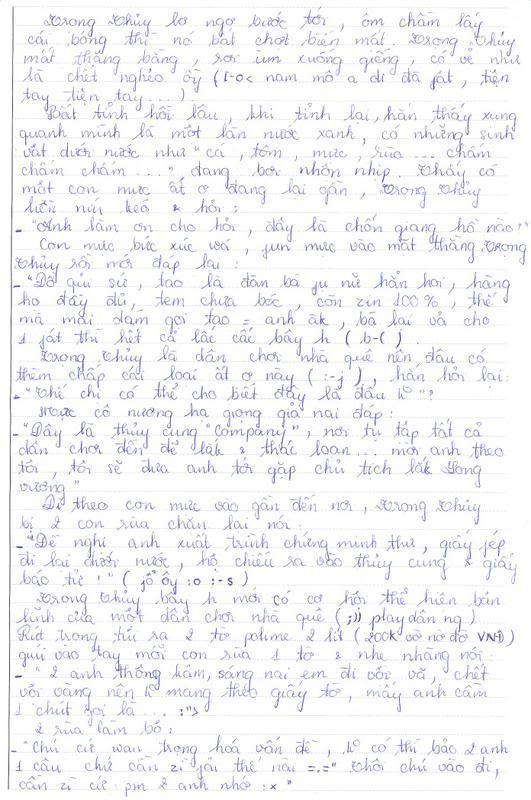 Trọng Thủy lơ ngơ bước tới, ôm chầm lấy
cái bóng thì nó bất chợt biến mất. Trọng Thủy
mất thăng bằng, rơi ùm xuống giếng, có vẻ như
là chết nghẻo òy (1-0< nam mô a di đà fật, tiện
tay tiện tay...)
Bất tỉnh hồi lâu, khi tỉnh lại, hắn thấy xung
quanh mình là một làn nước xanh, có những sinh
vật dưới nước như "cá, tôm, mực, rùa... chấm
chấm chấm...", đang bơi nhộn nhịp. Thấy có
một con mực ất ơ đang lại gần, Trọng Thủy
liền níu kéo & hỏi:
- "Anh làm ơn cho hỏi, đây là chốn giang hồ nào?"
Con mực bức xúc wá, fun mực vào mặt thằng Trọng
Thủy rồi mới đáp lại:
- "Đồ quỉ sứ, tao là đàn bà fụ nữ hẳn hơi, hàng
họ đầy đủ, tem chưa bóc, còn zin 100%, thế
mà mài dám gọi tao = anh àk, bà lại vả cho
1 fát thì hết cả lấc cấc bây h (b-().
Trọng Thủy là dân chơi nhà quê nên đâu có
thèm chấp cái loại ất ơ này (:-j), hắn hỏi lại:
- "Thế chị có thể cho biết đây là đâu ko"?
Mực cô nương hạ giọng giả nai đáp:
- "Đây là thủy cung "Company", nơi tụ tập tất cả
dân chơi đến để lắk & thác loạn... mời anh theo
tôi, tôi sẽ đưa anh tới gặp chủ tịch lắk Long
vương"
Đi theo con mực vào gần đến nơi, Trọng Thủy
bị 2 con rùa chặn lại nói:
- "Đề nghị anh xuất trình chứng minh thư, giấy fép
đi lại dưới nước, hộ chiếu ra vào thủy cung & giấy
báo tử!" (:o :-s)
Trọng Thủy bây h mới có cơ hội thể hiện bản
lĩnh của một dân chơi nhà quê (;)) play dân ng)
Rút trong túi ra 2 tờ polime 2 lít (200k vờ nờ đờ VNĐ)
gúi vào tay mỗi con rùa 1 tờ & nhẹ nhàng nói:
- "2 anh thông kảm, sáng nai em đi vội vã, chết
vội vàng nên ko mang theo giấy tờ, mấy anh cầm
1 chút gọi là... :">
2 rùa làm bộ:
- "Chú cứ wan trọng hoá vấn đề, ko có thì bảo 2 anh
1 câu chứ cần zì fải thế nài =.=" Thôi chú vào đi,
cần zì cứ pm 2 anh nhớ :x"